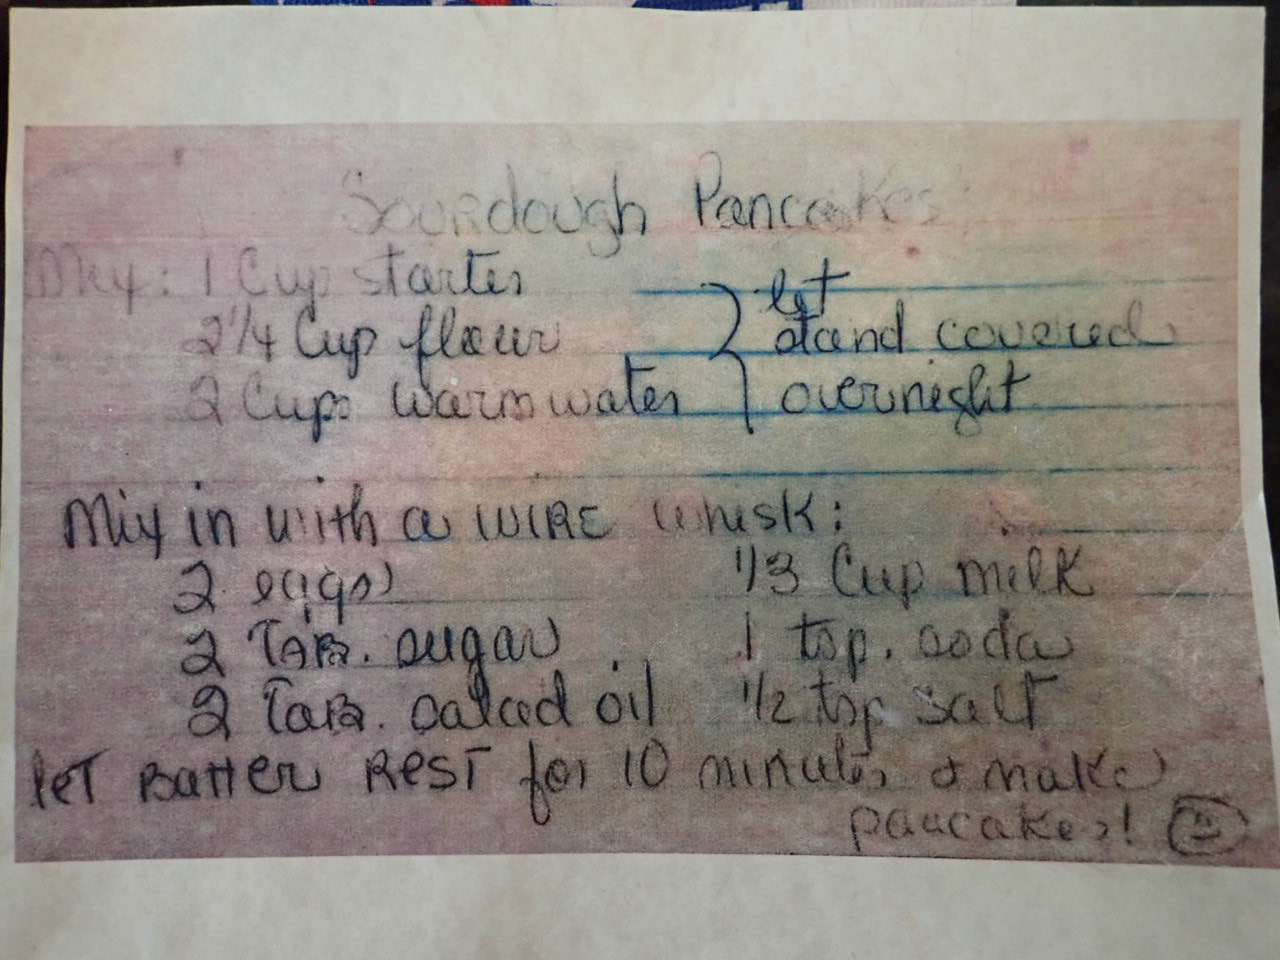 Sourdough Pancakes
Mix: 1 Cup starter
2 1/4 Cup flour
2 Cups warm water
let
stand covered
overnight
Mix in with a WIRE whisk:
2 eggs
1/3 Cup milk
2 TaBs. sugar
1 tsp. soda
2 TaBs. salad oil
1/2 tsp salt
let Batter REST for 10 minutes & make
pancakes!